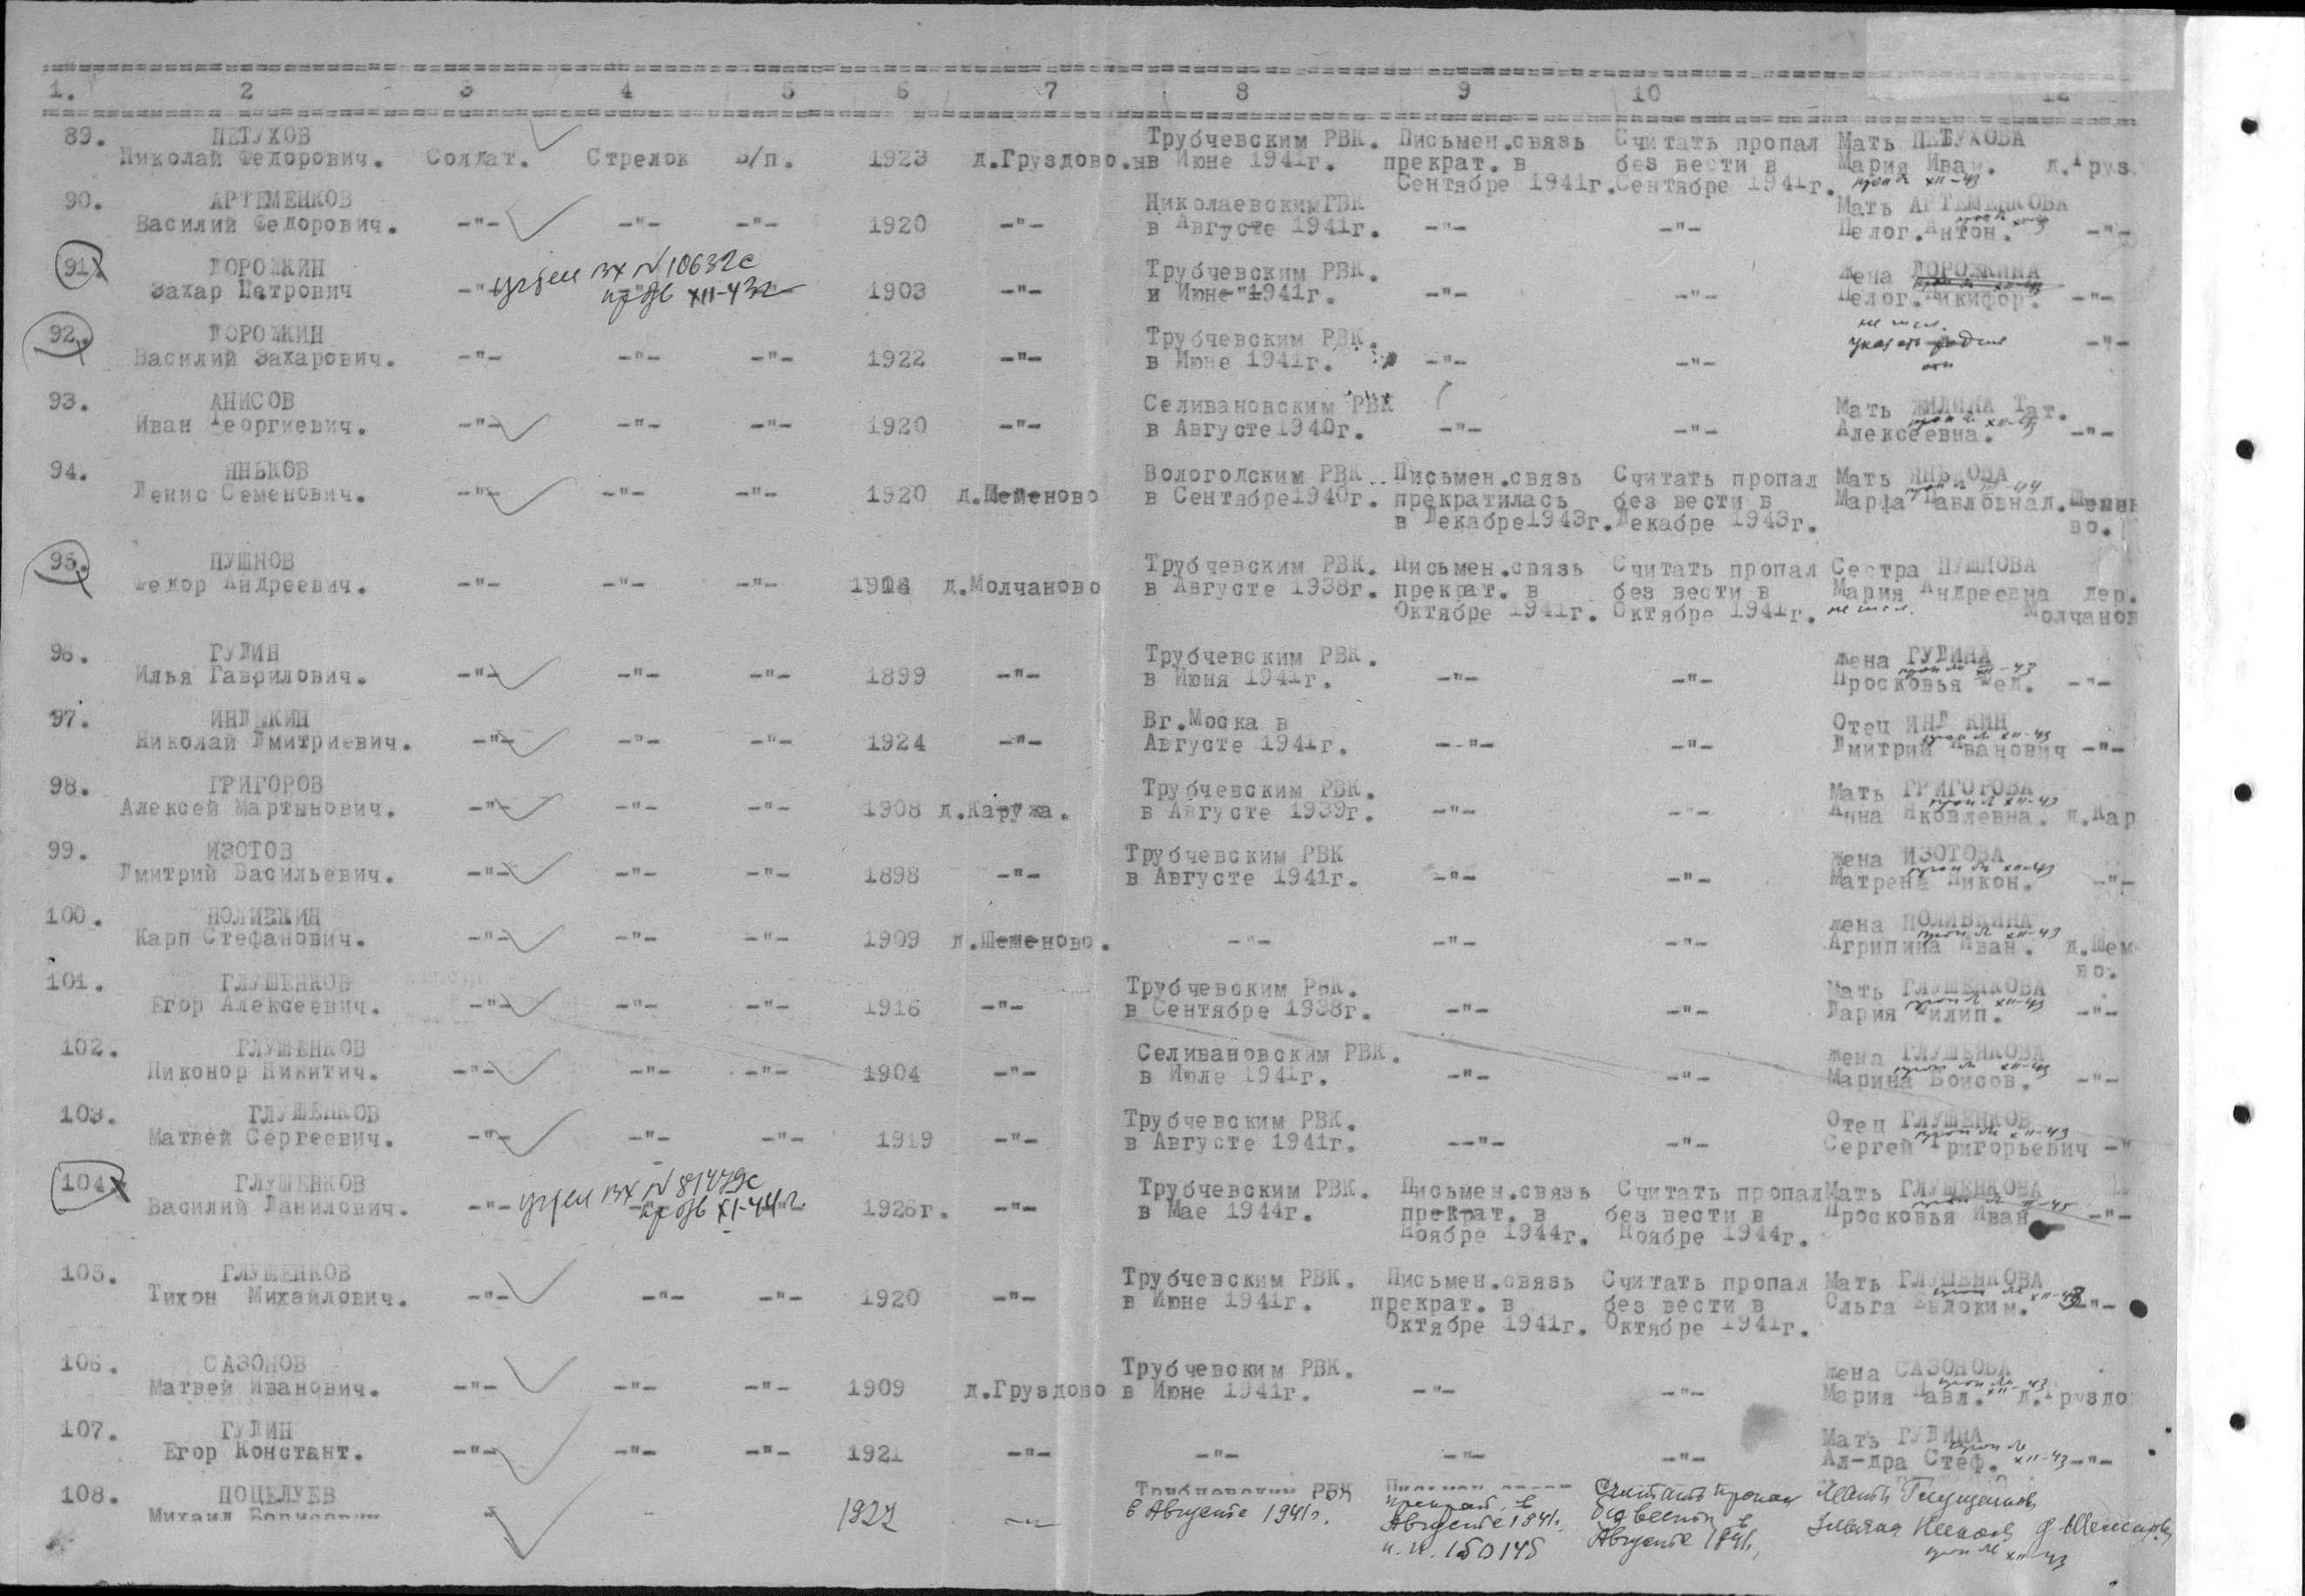 1. 2 3 4 5 6 7 8 9 10 12
89. ПЕТУХОВ Трубчевским РВК. Письмен.связь Считать пропал Мать ПЕТУХОВА
Николай Федорович. Солдат. Стрелок Б/п. 1923 д.Груздово. в Июне 1941г. прекрат. в без вести в Мария Иван. д.Груз
Сентябре 1941г. Сентябре 1941г. XII-43
90. АРТЕМЕНКОВ Николаевским ГВК Мать АРТЕМЕНКОВА
Василий Федорович. -"- -"- -"- 1920 -"- в Августе 1941г. -"- -"- Пелог.Антон. -"-
91. ДОРОЖКИН вх N 10632с Трубчевским РВК. Жена ДОРОЖКИНА
Захар Петрович -"- XII-43г 1903 -"- и Июне 1941г. -"- -"- Пелог.Никифор. -"-
92. ДОРОЖКИН Трубчевским РВК.
Василий Захарович. -"- -"- -"- 1922 -"- в Июне 1941г. -"- -"- -"-
93. АНИСОВ Селивановским РВК Мать ЖИЛИНА Тат.
Иван Георгиевич. -"- -"- -"- 1920 -"- в Августе 1940г. -"- -"- Алексеевна. -"-
94. ЯНЬКОВ Вологодским РВК.. Письмен.связь Считать пропал Мать ЯНЬКОВА
Денис Семенович. -"- -"- -"- 1920 д.Шеменово в Сентябре1940г. прекратилась без вести в Марфа Павловна д.Шемен
в Декабре1943г. Декабре 1943г. во.
95. ПУШНОВ Трубчевским РВК. Письмен.связь Считать пропал Сестра ПУШНОВА
Федор Андреевич. -"- -"- -"- д.Молчаново в Августе 1938г. прекрат. в без вести в Мария Андреевна дер.
Октябре 1941г. Октябре 1941г. Молчанов
96. ГУДИН Трубчевским РВК. Жена ГУДИНА
Илья Гаврилович. -"- -"- -"- 1899 -"- в Июня 1941г. -"- -"- Просковья Фед. -"-
97. ИНДЮШКИН Вг.Моска в Отец
Николай Дмитриевич. -"- -"- -"- 1924 -"- Августе 1941г. -"- -"- Дмитрий Иванович -"-
98. ГРИГОРОВ Трубчевским РВК. Мать ГРИГОРОВА
Алексей Мартынович. -"- -"- -"- 1908 д.Каружа. в Августе 1939г. -"- -"- Анна Яковлевна. д.Кар
99. ИЗОТОВ Трубчевским РВК Жена ИЗОТОВА
Дмитрий Васильевич. -"- -"- -"- 1898 -"- в Августе 1941г. -"- -"- Матрена Никон. -"-
100. ПОЛИВКИН Жена ПОЛИВКИНА
Карп Стефанович. -"- -"- -"- 1909 д.Шеменово. -"- -"- -"- Агрипина Иван. д.Шем
во.
101. ГЛУШЕНКОВ Трубчевским РВК. Мать ГЛУШЕНКОВА
Егор Алексеевич. -"- -"- -"- 1916 -"- в Сентябре 1938г. -"- -"- Дария Филип. -"-
102. ГЛУШЕНКОВ Селивановским РВК. Жена ГЛУШЕНКОВА
Никонор Никитич. -"- -"- -"- 1904 -"- в Июле 1941г. -"- -"- Марина Боисов. -"-
103. ГЛУШЕНКОВ Трубчевским РВК. Отец ГЛУШЕНКОВ
Матвей Сергеевич. -"- -"- -"- 1919 -"- в Августе 1941г. --"- -"- Сергей Григорьевич -"
104 ГЛУШЕНКОВ вх N 81479с Трубчевским РВК. Письмен.связь Считать пропал Мать ГЛУШЕНКОВА
Василий Данилович. -"- XI-44г. 1926г. -"- в Мае 1944г. прекрат. в без вести в Просковья Иван -"-
Ноябре 1944г. Ноябре 1944г.
105. ГЛУШЕНКОВ Трубчевским РВК. Письмен.связь Считать пропал Мать ГЛУШЕНКОВА
Тихон Михайлович. -"- -"- -"- 1920 -"- в Июне 1941г. прекрат. в без вести в Ольга Евдоким. -"-
Октябре 1941г. Октябре 1941г.
106. САЗОНОВ Трубчевским РВК. Жена САЗОНОВА
Матвей Иванович. -"- -"- -"- 1909 д.Груздово в Июне 1941г. -"- -"- Мария Павл. д.Груздо
107. ГУДИН Мать ГУДИНА
Егор Констант. -"- -"- -"- 1921 -"- -"- -"- -"- Ал-дра Стеф. XII-43 -"-
108. ПОЦЕЛУЕВ Трубчевским РВК Считать пропал Мать
Михаил Борисович в Августе 1941г. прекрат. в без вести в
Августе 1941г. Августе 1941г.
п.п. 150145 XII-43